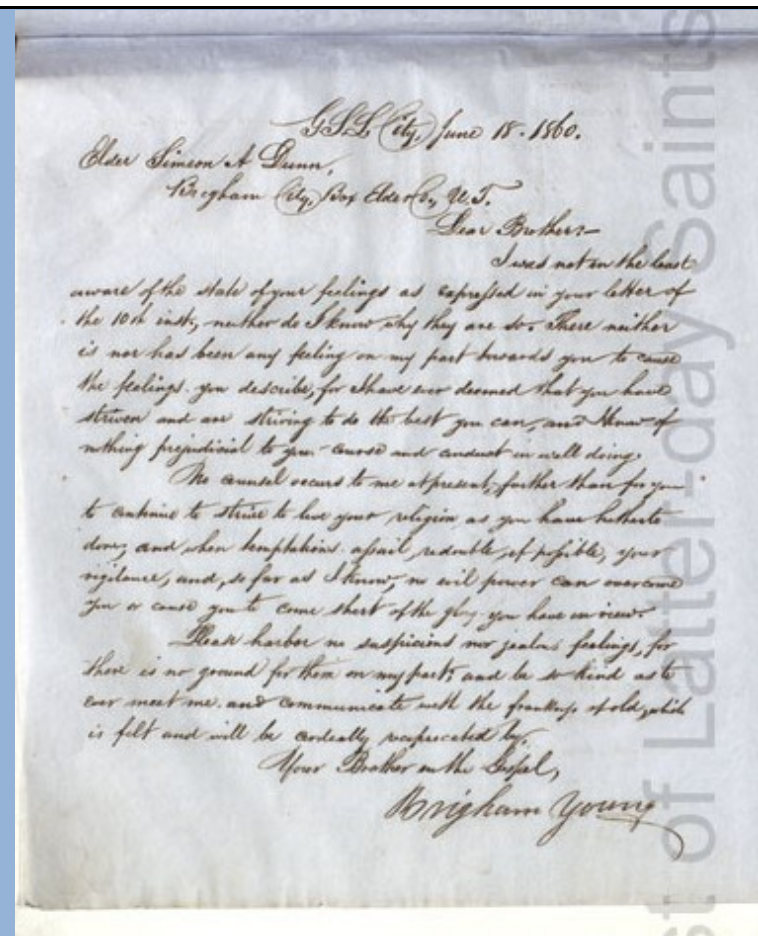 G.S.L. City, June 18. 1860.
Elder Simeon A Dunn,
Brigham City, Box Elder Co, U.T.
Dear Brother:—
I was not in the least
aware of the state of your feelings as expressed in your letter of
the 10th inst., neither do I know why they are so. There neither
is nor has been any feeling on my part towards you to cause
the feelings you describe, for I have ever deemed that you have
striven and are striving to do the best you can, and I know of
nothing prejudicial to your course and conduct in well doing.
No counsel occurs to me at present, further than for you
to continue to strive to live your religion as you have hitherto
done; and when temptations assail, redouble, if possible, your
vigilance, and, so far as I know, no evil power can overcome
you or cause you to come short of the glory you have in view.
Please harbor no suspicious nor jealous feelings, for
there is no ground for them on my part; and be so kind as to
ever meet me and communicate with the frankness of old, which
is felt and will be cordially reciprocated by
Your Brother in the Gospel,
Brigham Young
st of Latter-day Saints